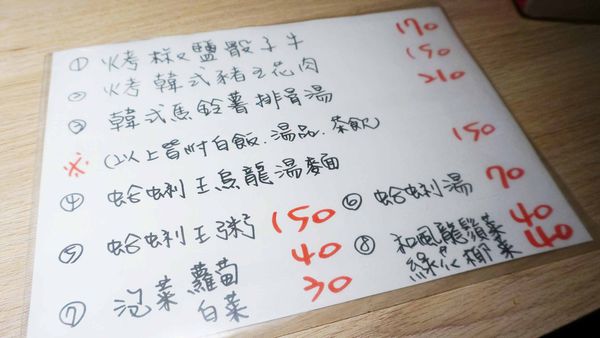 ① 火考 椒鹽骰子牛 170
② 火考 韓式豬五花肉 150
③ 韓式馬鈴薯排骨湯 210
※ (以上皆附白飯.湯品.茶飲)
④ 蛤蜊王烏龍湯麵 150
⑤ 蛤蜊王粥 150
⑥ 蛤蜊湯 70
⑦ 泡菜 蘿蔔 40
白菜 30
⑧ 和風龍鬚菜 40
綠花椰菜 40